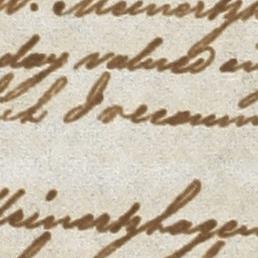 W. Meinertzh
day valued
I recomm
Meinertzhagen